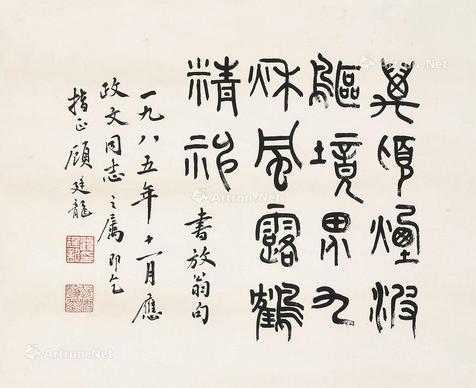 萬頃煙波
鷗境界九
秋風露鶴
精神
書放翁句
一九八五年十一月應
政文同志之屬即乞
指正顧廷龍
Artron.Net